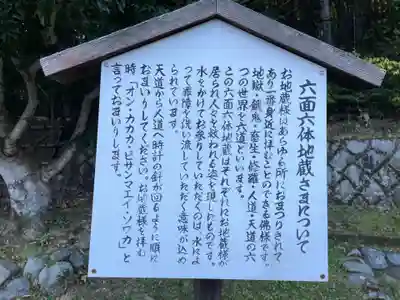 六面六体地蔵さまについて
お地蔵様はあらゆる所におまつりされて
あり一番身近に拝むことのできる佛様です。
地獄・餓鬼・畜生・修羅・人道・天道の六
つの世界を六道といいます。
この六面六体地蔵はそれぞれにお地蔵様が
居られ人々を救われる姿を現したものです。
水をかけてお参りしていただくのは水によ
って罪障を洗い流していただく意味が込め
られています。
天道から人道へ時計の針が回るように順に
おまいりしてください。お地蔵様を拝む
時「オン・カカカ・ビサンマエイ・ソワカ」と
言っておまいりします。